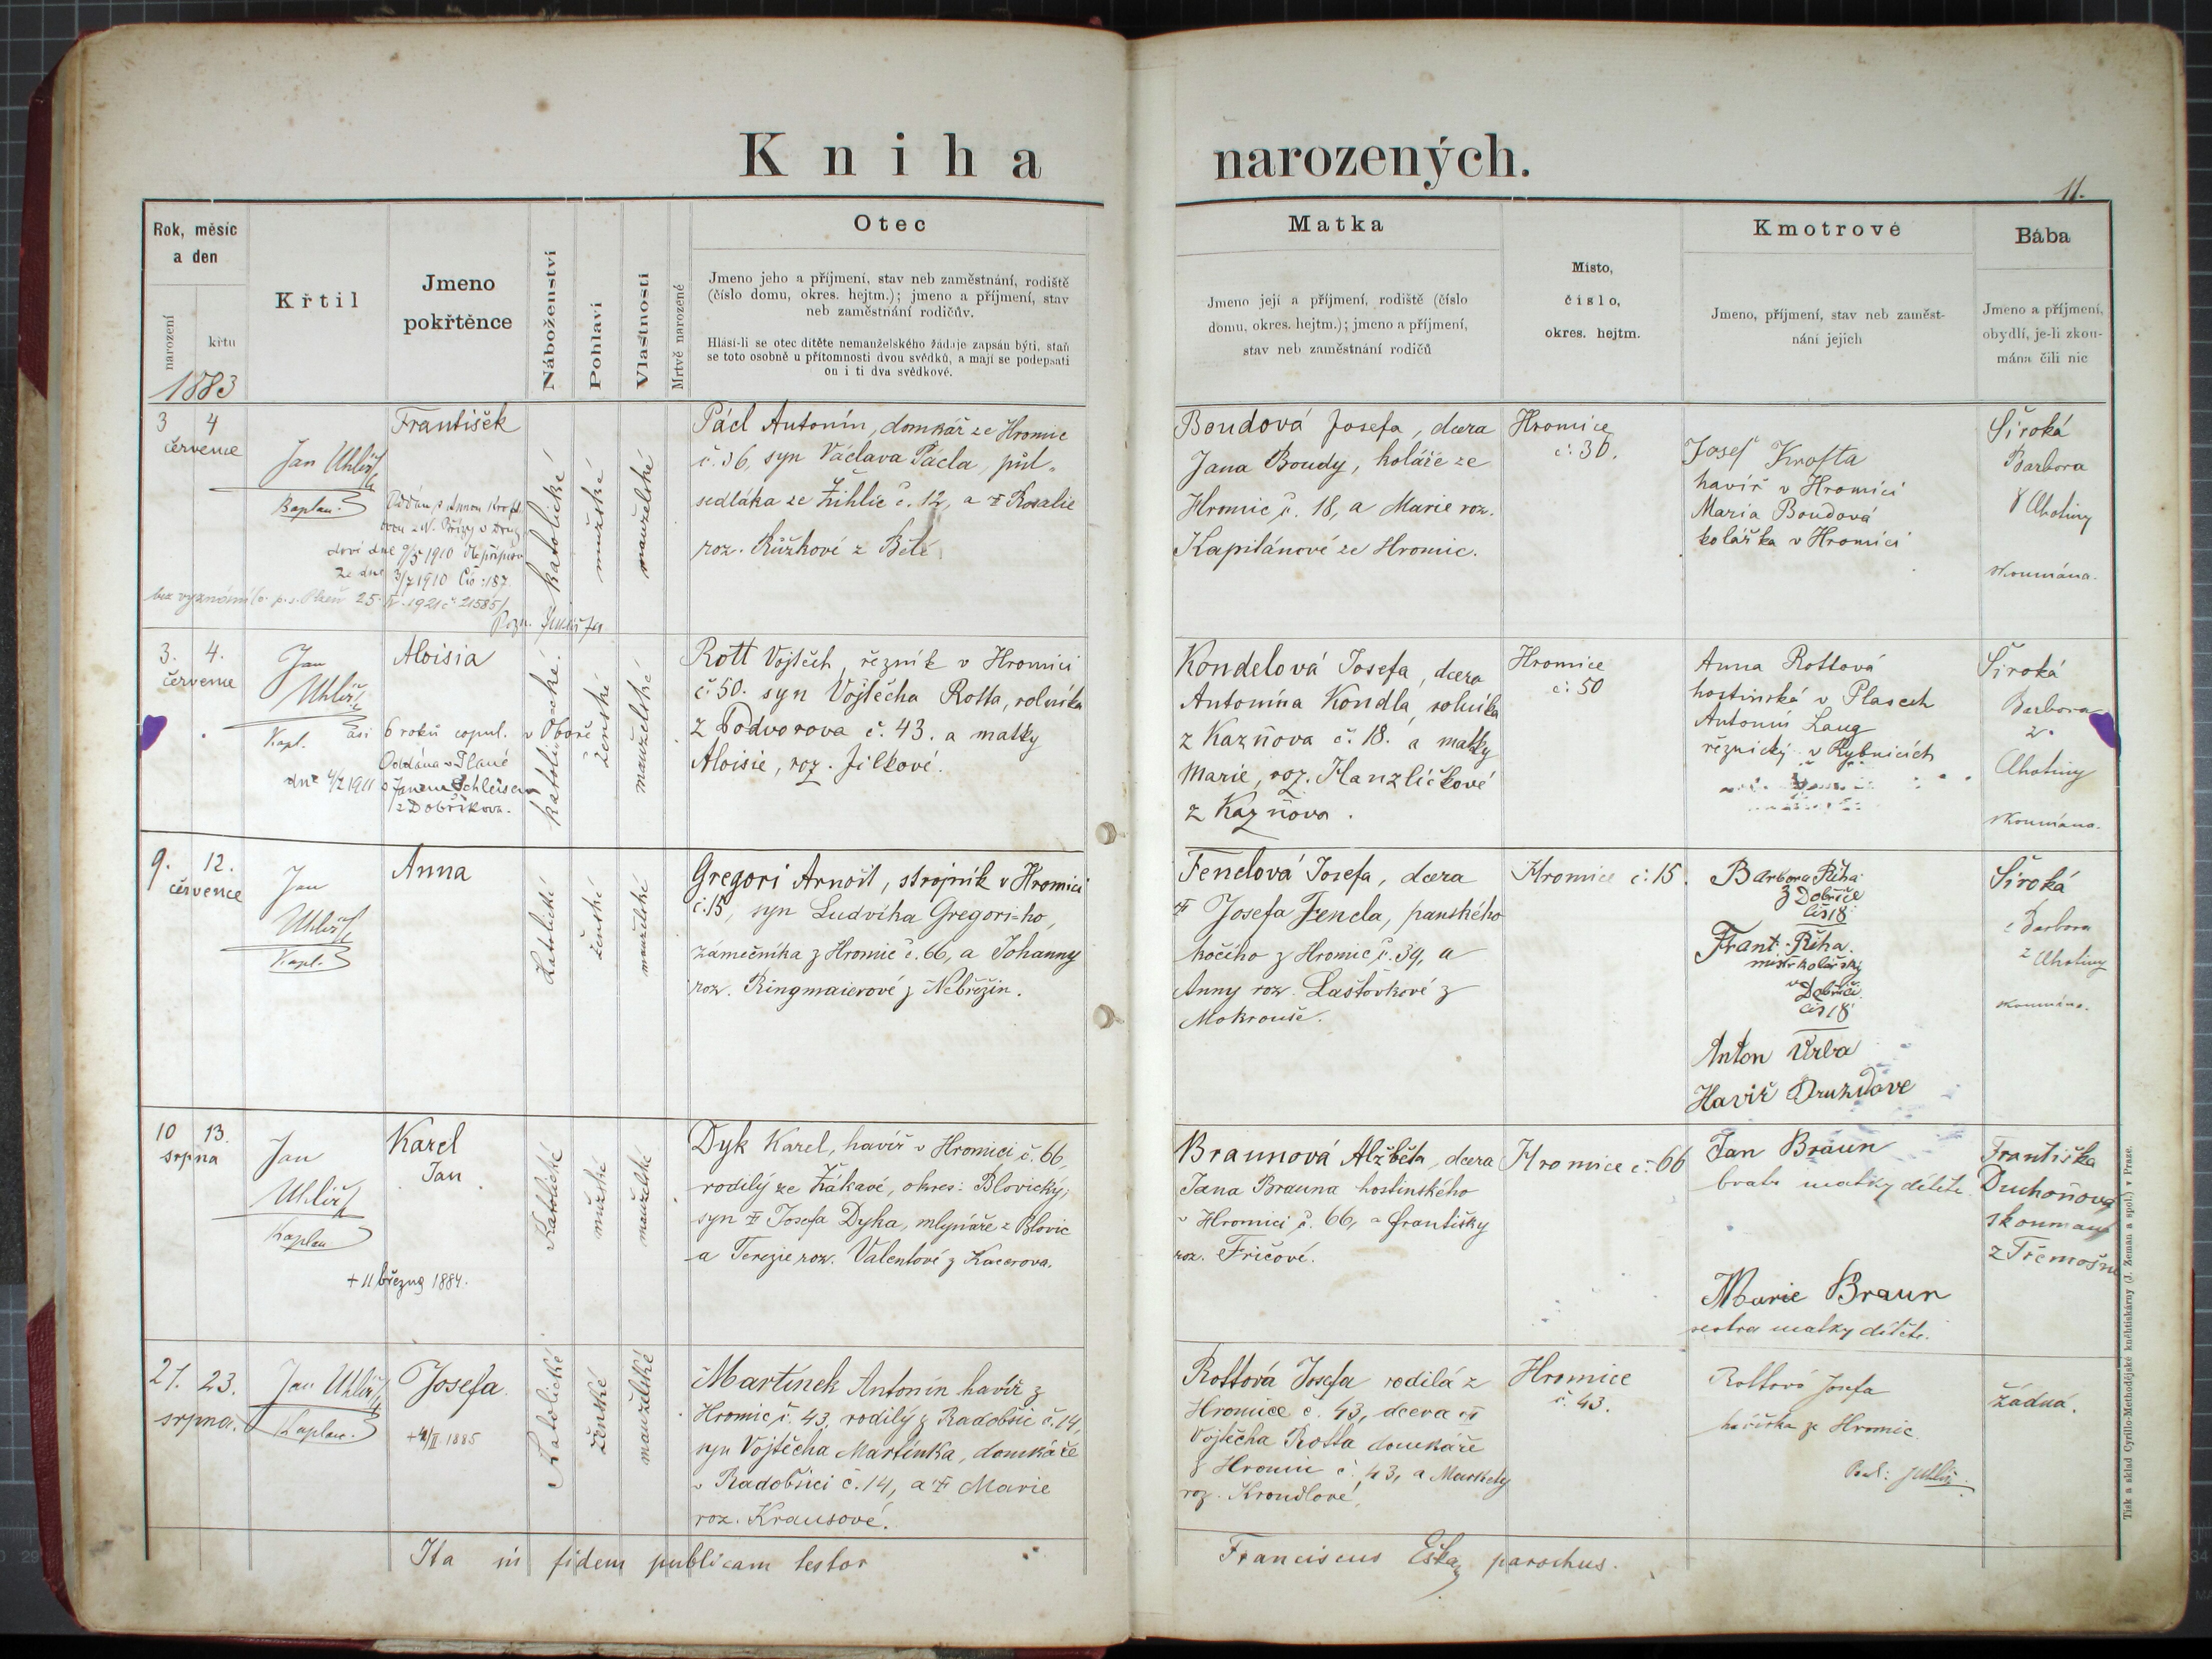 Kniha narozených.
11.
Rok, měsíc
a den
narození
křtu
1883
Křtil
Jmeno
pokřtěnce
Náboženství
Pohlaví
Vlastnosti
Mrtvě narozené
Otec
Jmeno jeho a příjmení, stav neb zaměstnání, rodiště
(číslo domu, okres. hejtm.); jmeno a příjmení, stav
neb zaměstnání rodičův.
Hlásí-li se otec dítěte nemanželského žádaje zapsán býti, staň
se toto osobně u přítomnosti dvou svědků, a mají se podepsati
on i ti dva svědkové.
Matka
Jmeno její a příjmení, rodiště (číslo
domu, okres. hejtm.); jmeno a příjmení,
stav neb zaměstnání rodičů
Místo,
číslo,
okres. hejtm.
Kmotrové
Jmeno, příjmení, stav neb zaměst-
nání jejich
Bába
Jmeno a příjmení,
obydlí, je-li zkou-
mána čili nic
3 4
července
Jan Uhlíř
Kaplan
František
dne 9/5 1910
ze dne 3/7 1910 Čís: 187
bez vyznání 25. IV. 1921 č. 21585
katolické
mužské
manželské
Pácl Antonín, domkář ze Hromic
č. 36, syn Václava Pácla, půl-
sedláka ze Žihlic č. 12, a † Rosalie
roz. Růžkové z Bělé
Boudová Josefa, dcera
Jana Boudy, koláře ze
Hromic č. 18, a Marie roz.
Kapilánové ze Hromic.
Hromice
č: 36.
Josef Krofta
havíř v Hromici
Maria Boudová
kolářka v Hromici
Široká
Barbora
z Lhotiny
zkoumána.
3. 4.
července
Jan
Uhlíř
Kapl.
Aloisia
asi 6 roků copul. v Oboře
Oddána v Plané
dne 4/2 1911 s Janem Schleisem
z Dobříkova.
katolické.
ženské
manželské
Rott Vojtěch, řezník v Hromici
č: 50. syn Vojtěcha Rotta, rolníka
z Podvorova č. 43. a matky
Aloisie, roz. Jílkové.
Kondelová Josefa, dcera
Antonína Kondla, rolníka
z Kazňova č: 18. a matky
Marie, roz. Hanzlíčkové
z Kazňova.
Hromice
č: 50
Anna Rottová
hostinská v Plasech
Antonín Lang
řeznický v Rybnicích
Široká
Barbora
z
Lhotiny
zkoumána.
9. 12.
července
Jan
Uhlíř
Kapl.
Anna
katolické
ženské
manželské
Gregori Arnošt, strojník v Hromici
č: 15, syn Ludvíka Gregori-ho,
zámečníka z Hromic č. 66, a Johanny
roz. Ringmaierové z Nebřežin.
Fenclová Josefa, dcera
† Josefa Fencla, panského
kočího z Hromic č. 39, a
Anny roz. Laštovkové z
Mokrouše.
Hromice č: 15.
Barbora Říha
z Dobříče
čís 18
Frant. Říha.
mistr kolářský
v Dobříči
čís 18
Anton Vrba
Havíř Druzdove
Široká
Barbora
z Lhotiny
zkoumána.
10 13.
srpna
Jan
Uhlíř
Kaplan
Karel
Jan
+ 11 března 1884.
Katolické
mužské
manželské
Dyk Karel, havíř v Hromici č. 66,
rodilý ze Žákavé, okres: Blovický;
syn † Josefa Dyka, mlynáře z Blovic
a Terezie roz. Valentové z Kacerova.
Braunová Alžběta, dcera
Jana Brauna hostinského
v Hromici č. 66, a Františky
roz. Fričové.
Hromice č: 66
Jan Braun
bratr matky dítěte
Marie Braun
sestra matky dítěte.
Františka
Duchoňova
skoumaná
z Třemošné
21. 23.
srpna.
Jan Uhlíř
Kaplan.
Josefa.
+ 4/II. 1885
Katolické
ženské
manželské
Martínek Antonín havíř z
Hromic č. 43, rodilý z Radobšic č. 14,
syn Vojtěcha Martínka, domkáře
v Radobšici č. 14, a † Marie
roz. Krausové.
Rottová Josefa rodilá z
Hromice č. 43, dcera †
Vojtěcha Rotta domkáře
z Hromic č. 43, a Markety
roz. Krondlové.
Hromice
č. 43.
Rottová Josefa
havířka ze Hromic.
žádná.
Ita in fidem publicam testor
Franciscus parochus.
Tisk a sklad Cyrillo-Methodějské knihtiskárny (J. Zeman a spol.) v Praze.